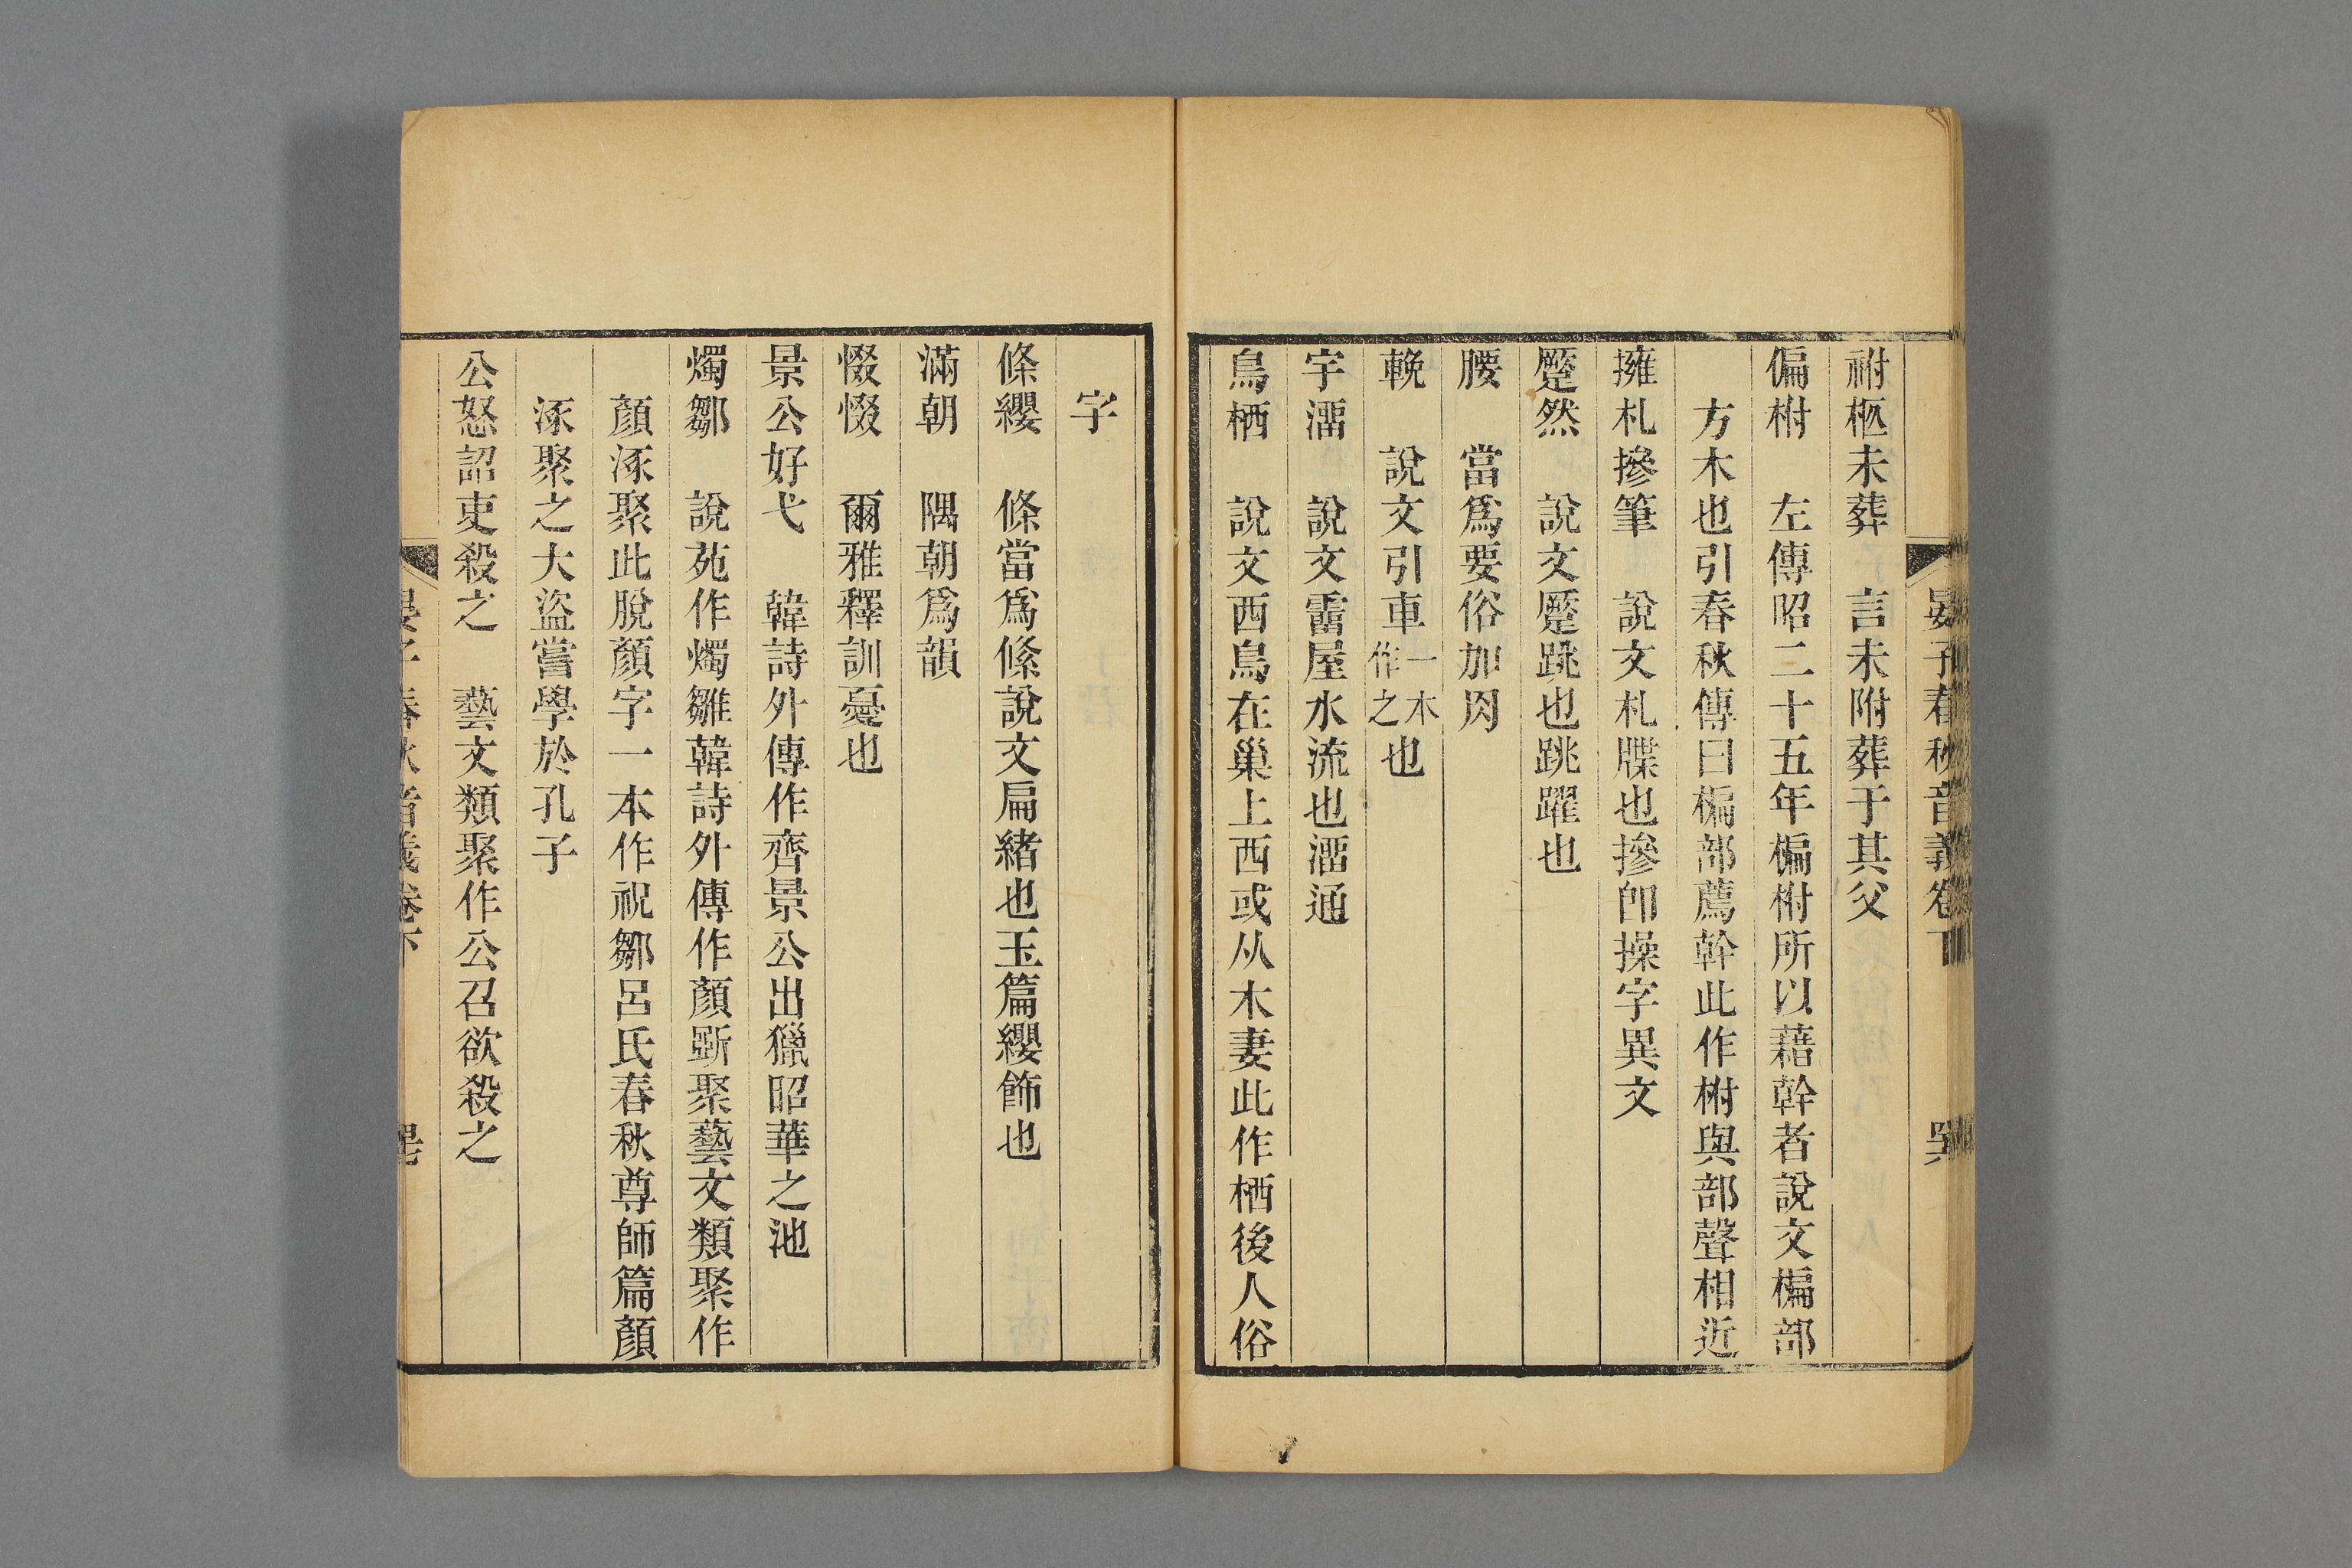 晏子春秋音義卷下
祔柩未葬 言未附葬于其父
偏柎 左傳昭二十五年楄柎所以藉幹者說文楄部
方木也引春秋傳曰楄部薦幹此作柎與部聲相近
擁札摻筆 說文札牒也摻卽操字異文
蹷然 說文蹷跳也跳躍也
腰 當爲要俗加肉
輓 說文引車一本作之也
宇溜 說文霤屋水流也溜通
鳥栖 說文西鳥在巢上西或从木妻此作栖後人俗
字
條纓 條當爲絛說文扁緒也玉篇纓飾也
滿朝 隅朝爲韻
惙惙 爾雅釋訓憂也
景公好弋 韓詩外傳作齊景公出獵昭華之池
燭鄒 說苑作燭雛韓詩外傳作顏斲聚藝文類聚作
顏涿聚此脫顏字一本作祝鄒呂氏春秋尊師篇顏
涿聚之大盜嘗學於孔子
公怒詔吏殺之 藝文類聚作公召欲殺之
晏子春秋音義卷下